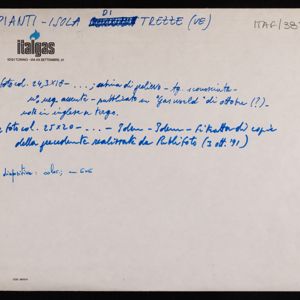 PIANTI - ISOLA DI TREZZE (VE)
ITAF/38
italgas
10121 TORINO - VIA XX SETTEMBRE, 41
foto col. 24,3x18 - ...; cabina di prelievo - fg. sconosciuto -
n° neg. assente - pubblicato in "Gas world" di ottobre (?) -
note in inglese a tergo.
foto col. 25x20 - ... - Idem - Idem - Si tratta di copia
della precedente realizzata da Publifoto (3 ott. '91)
diapositiva: color; -- EVE